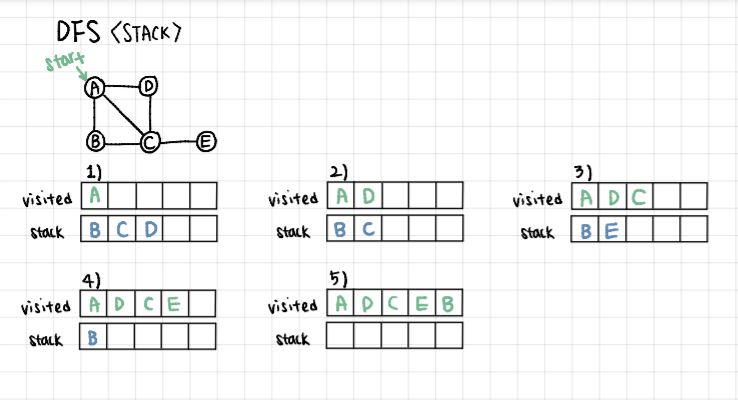 DFS <STACK>
start
A D
B C E
1) 2) 3)
visited A
stack B C D
visited A D
stack B C
visited A D C
stack B E
4) 5)
visited A D C E
stack B
visited A D C E B
stack